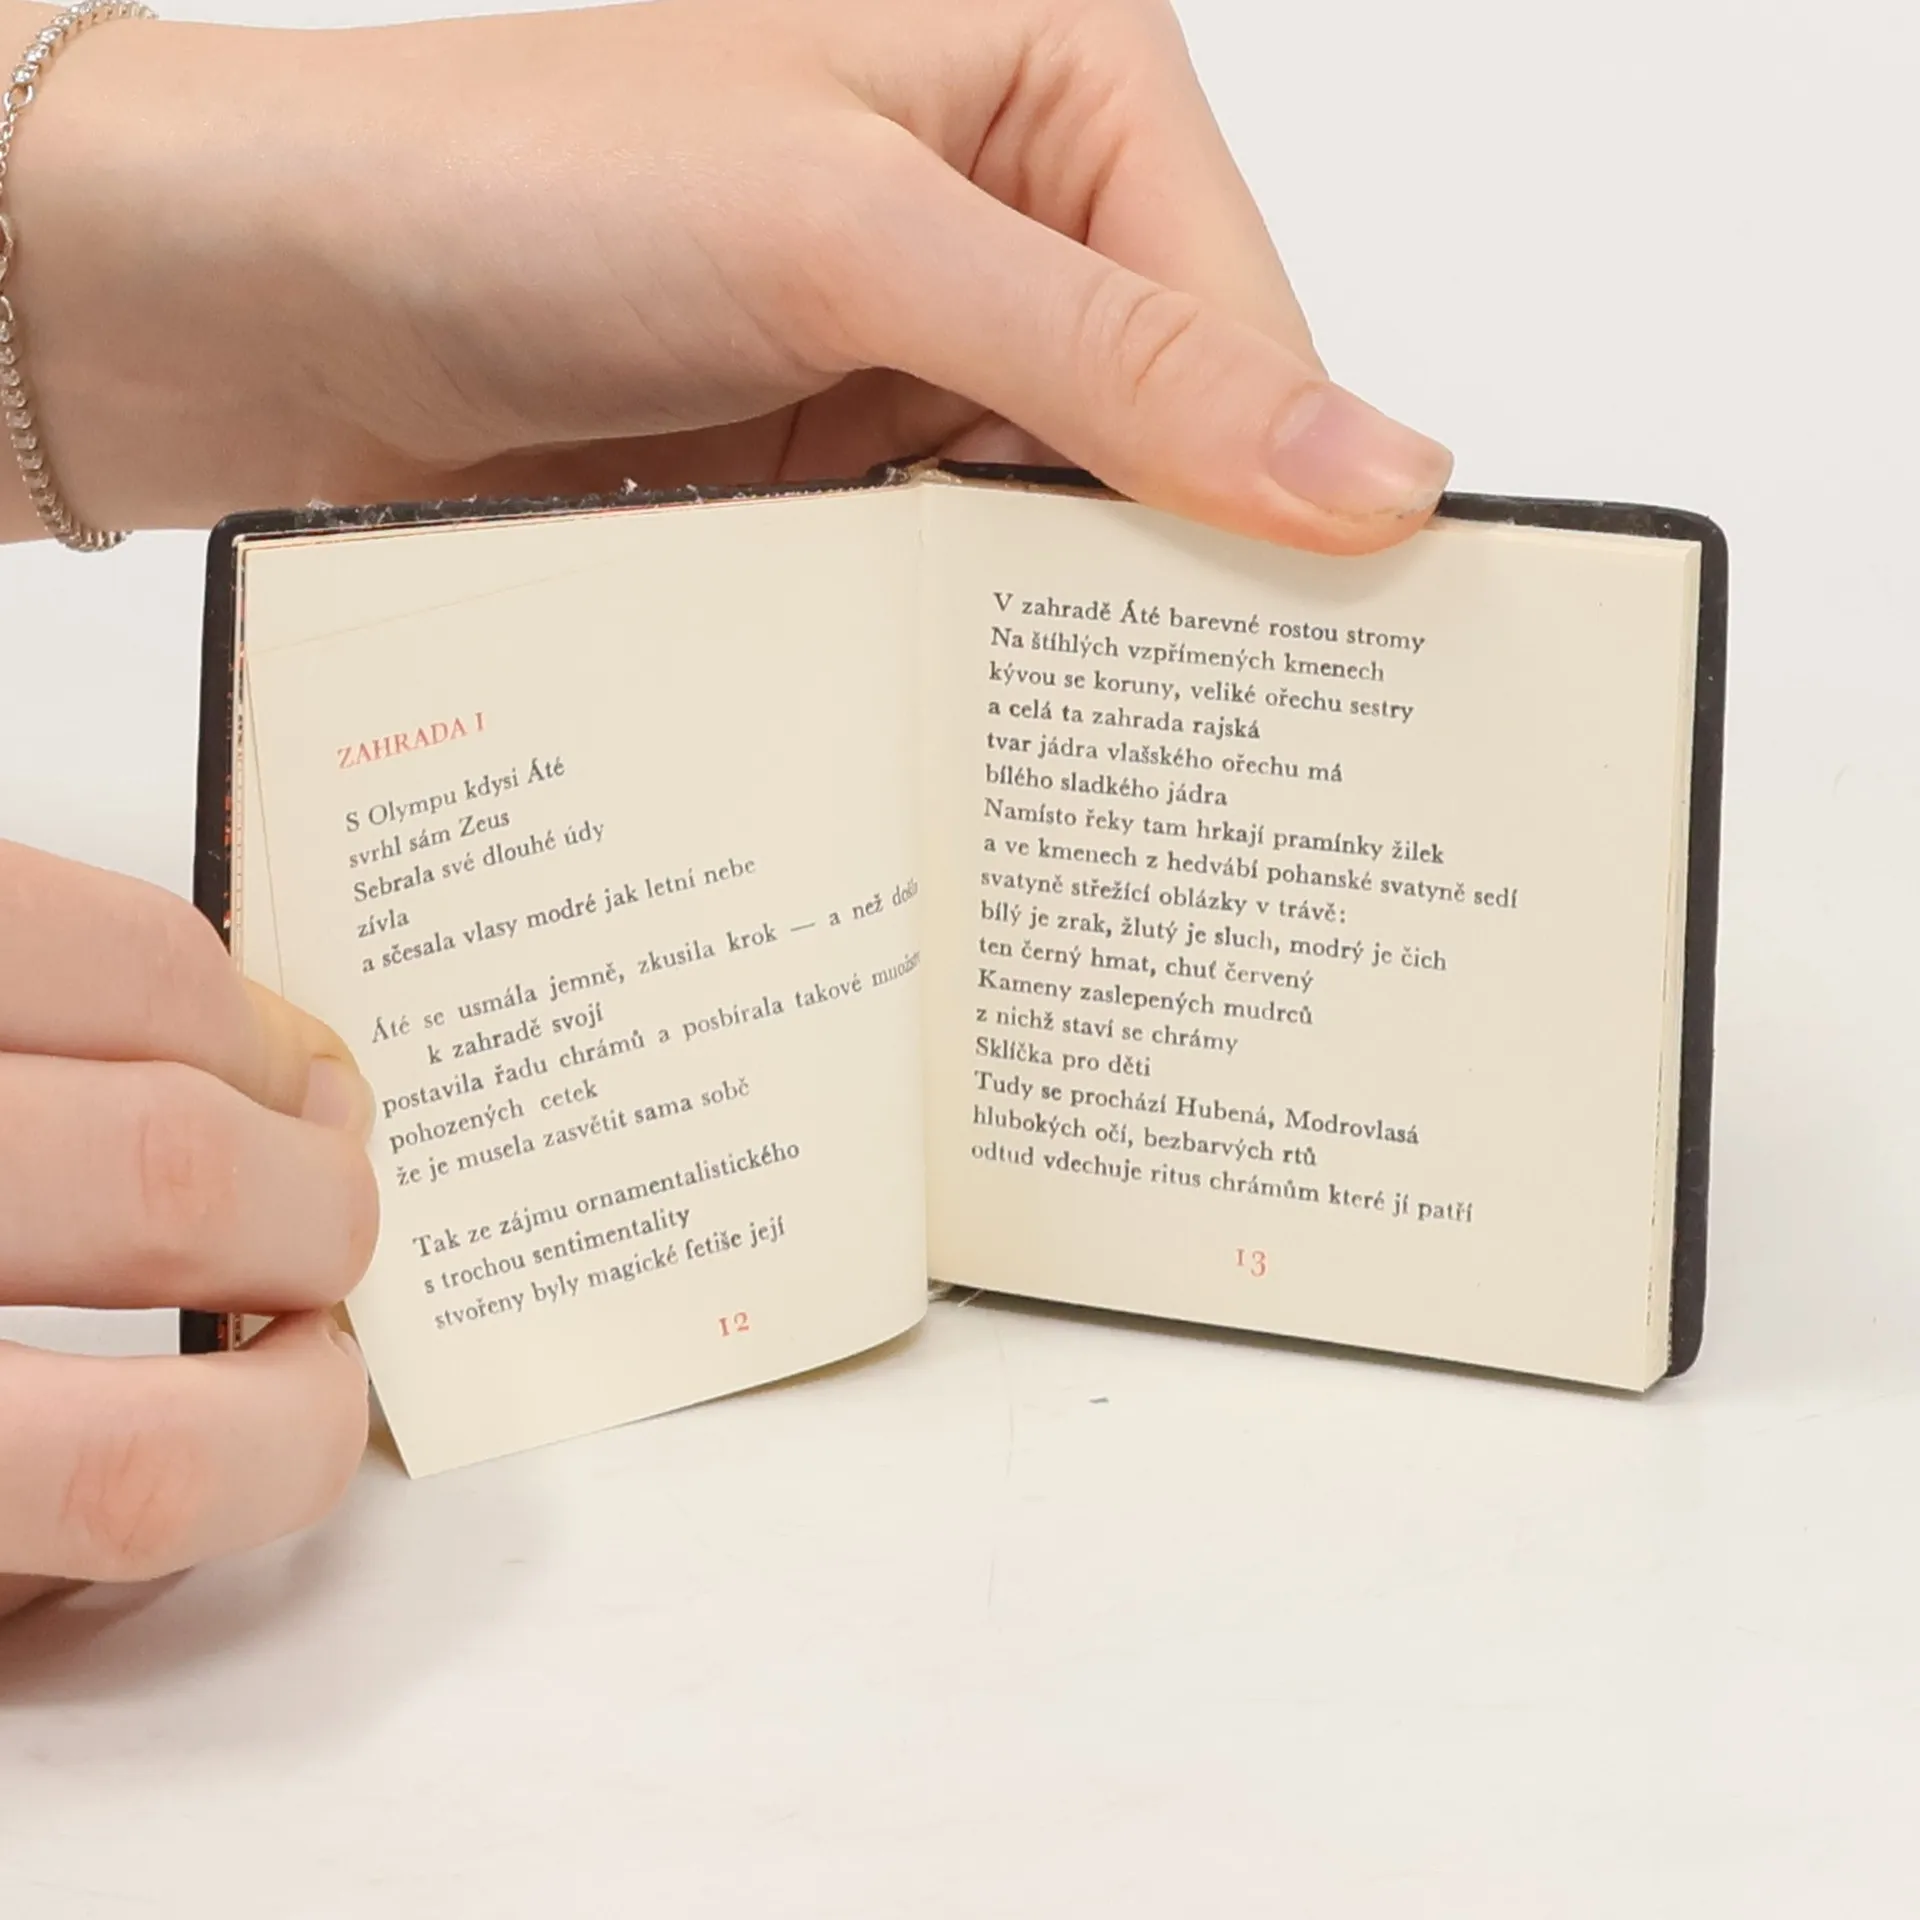 ZAHRADA I
S Olympu kdysi Áté
svrhl sám Zeus
Sebrala své dlouhé údy
zívla
a sčesala vlasy modré jak letní nebe
Áté se usmála jemně, zkusila krok — a než došla
k zahradě svojí
postavila řadu chrámů a posbírala takové
pohozených cetek
že je musela zasvětit sama sobě
Tak ze zájmu ornamentalistického
s trochou sentimentality
stvořeny byly magické fetiše její
12
V zahradě Áté barevné rostou stromy
Na štíhlých vzpřímených kmenech
kývou se koruny, veliké ořechu sestry
a celá ta zahrada rajská
tvar jádra vlašského ořechu má
bílého sladkého jádra
Namísto řeky tam hrkají pramínky žilek
a ve kmenech z hedvábí pohanské svatyně sedí
svatyně střežící oblázky v trávě:
bílý je zrak, žlutý je sluch, modrý je čich
ten černý hmat, chuť červený
Kameny zaslepených mudrců
z nichž staví se chrámy
Sklíčka pro děti
Tudy se prochází Hubená, Modrovlasá
hlubokých očí, bezbarvých rtů
odtud vdechuje ritus chrámům které jí patří
13